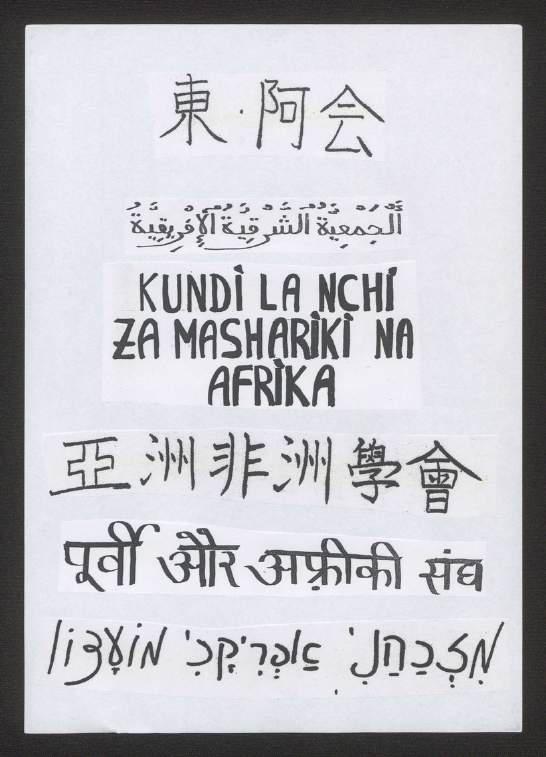 東・阿会
اَلْجَمْعِيَّةُ الشَّرْقِيَّةُ الْإِفْرِيقِيَّةُ
KUNDI LA NCHI
ZA MASHARIKI NA
AFRIKA
亞洲非洲學會
पूर्वी और अफ़्रीकी संघ
מוֹעָדוֹן